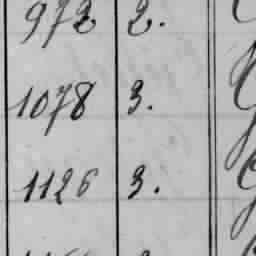 972 2.
1078 3.
1126 3.